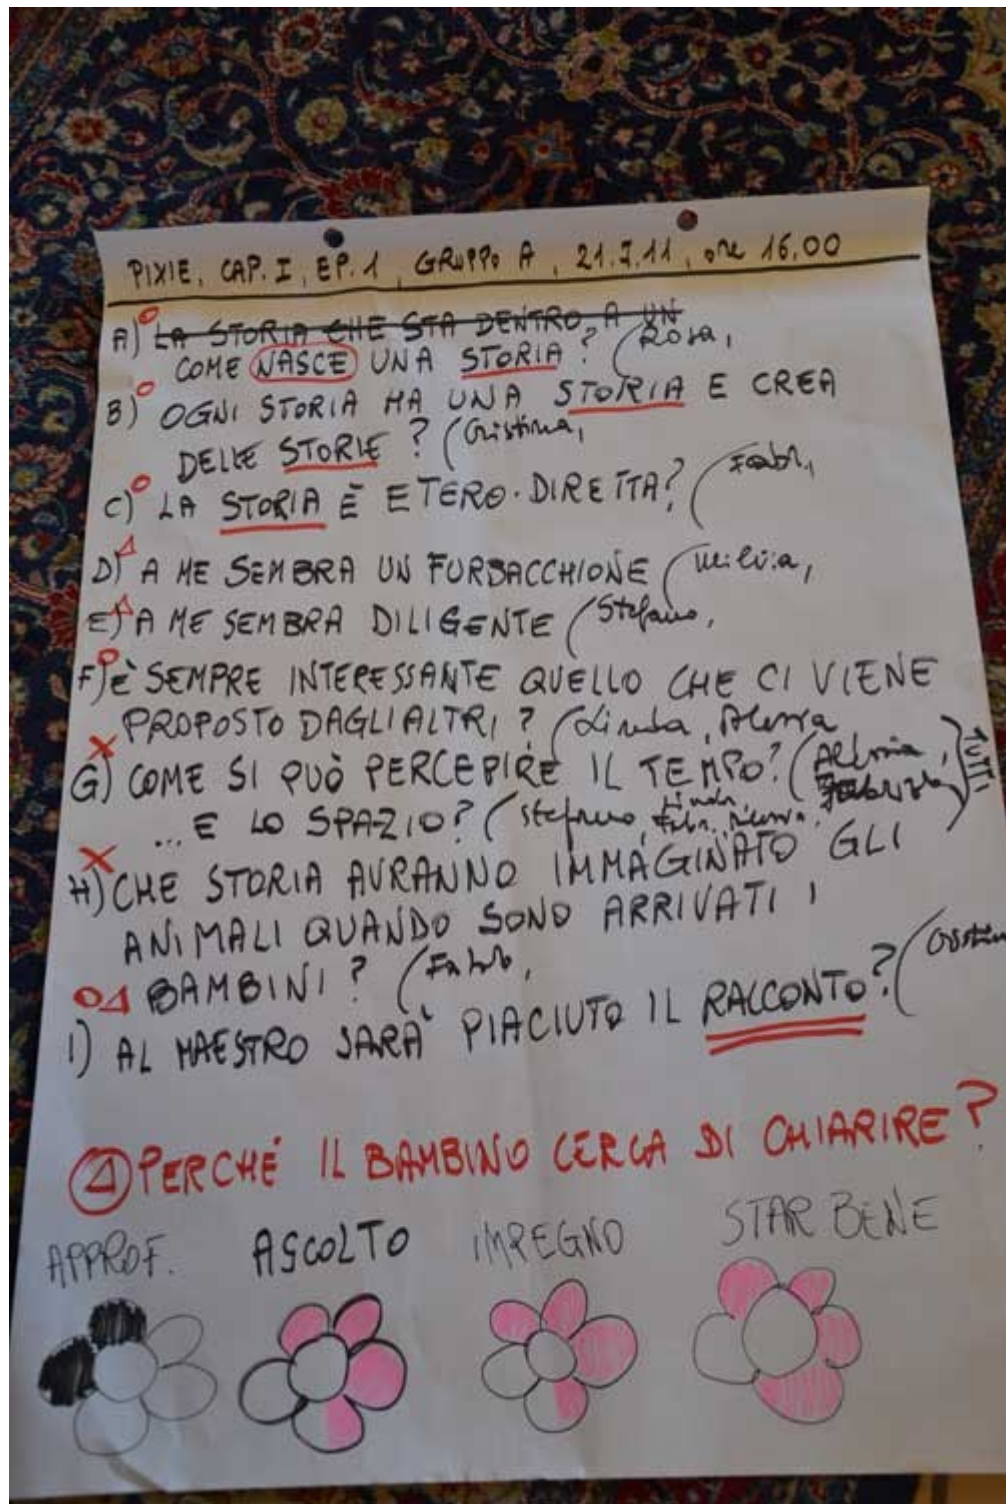 PIXIE, CAP. I, EP. 1, GRUPPO A, 21.7.11, ore 16.00
A) LA STORIA CHE STA DENTRO A UN
COME NASCE UNA STORIA? (Rosa,
B) OGNI STORIA HA UNA STORIA E CREA
DELLE STORIE? (Cristina,
C) LA STORIA È ETERO-DIRETTA? (Fabr,
D) A ME SEMBRA UN FURBACCHIONE (Milvia,
E) A ME SEMBRA DILIGENTE (Stefano,
F) È SEMPRE INTERESSANTE QUELLO CHE CI VIENE
PROPOSTO DAGLI ALTRI? (Linda, Alessia
G) COME SI PUÒ PERCEPIRE IL TEMPO? (Alessia, Fabrizio) TUTTI
... E LO SPAZIO? (Stefano, Linda, Fabr, Alessia,
H) CHE STORIA AVRANNO IMMAGINATO GLI
ANIMALI QUANDO SONO ARRIVATI I
BAMBINI? (
I) AL MAESTRO SARÀ PIACIUTO IL RACCONTO? (Cristin
Δ PERCHÉ IL BAMBINO CERCA DI CHIARIRE?
APPROF. ASCOLTO IMPEGNO STAR BENE